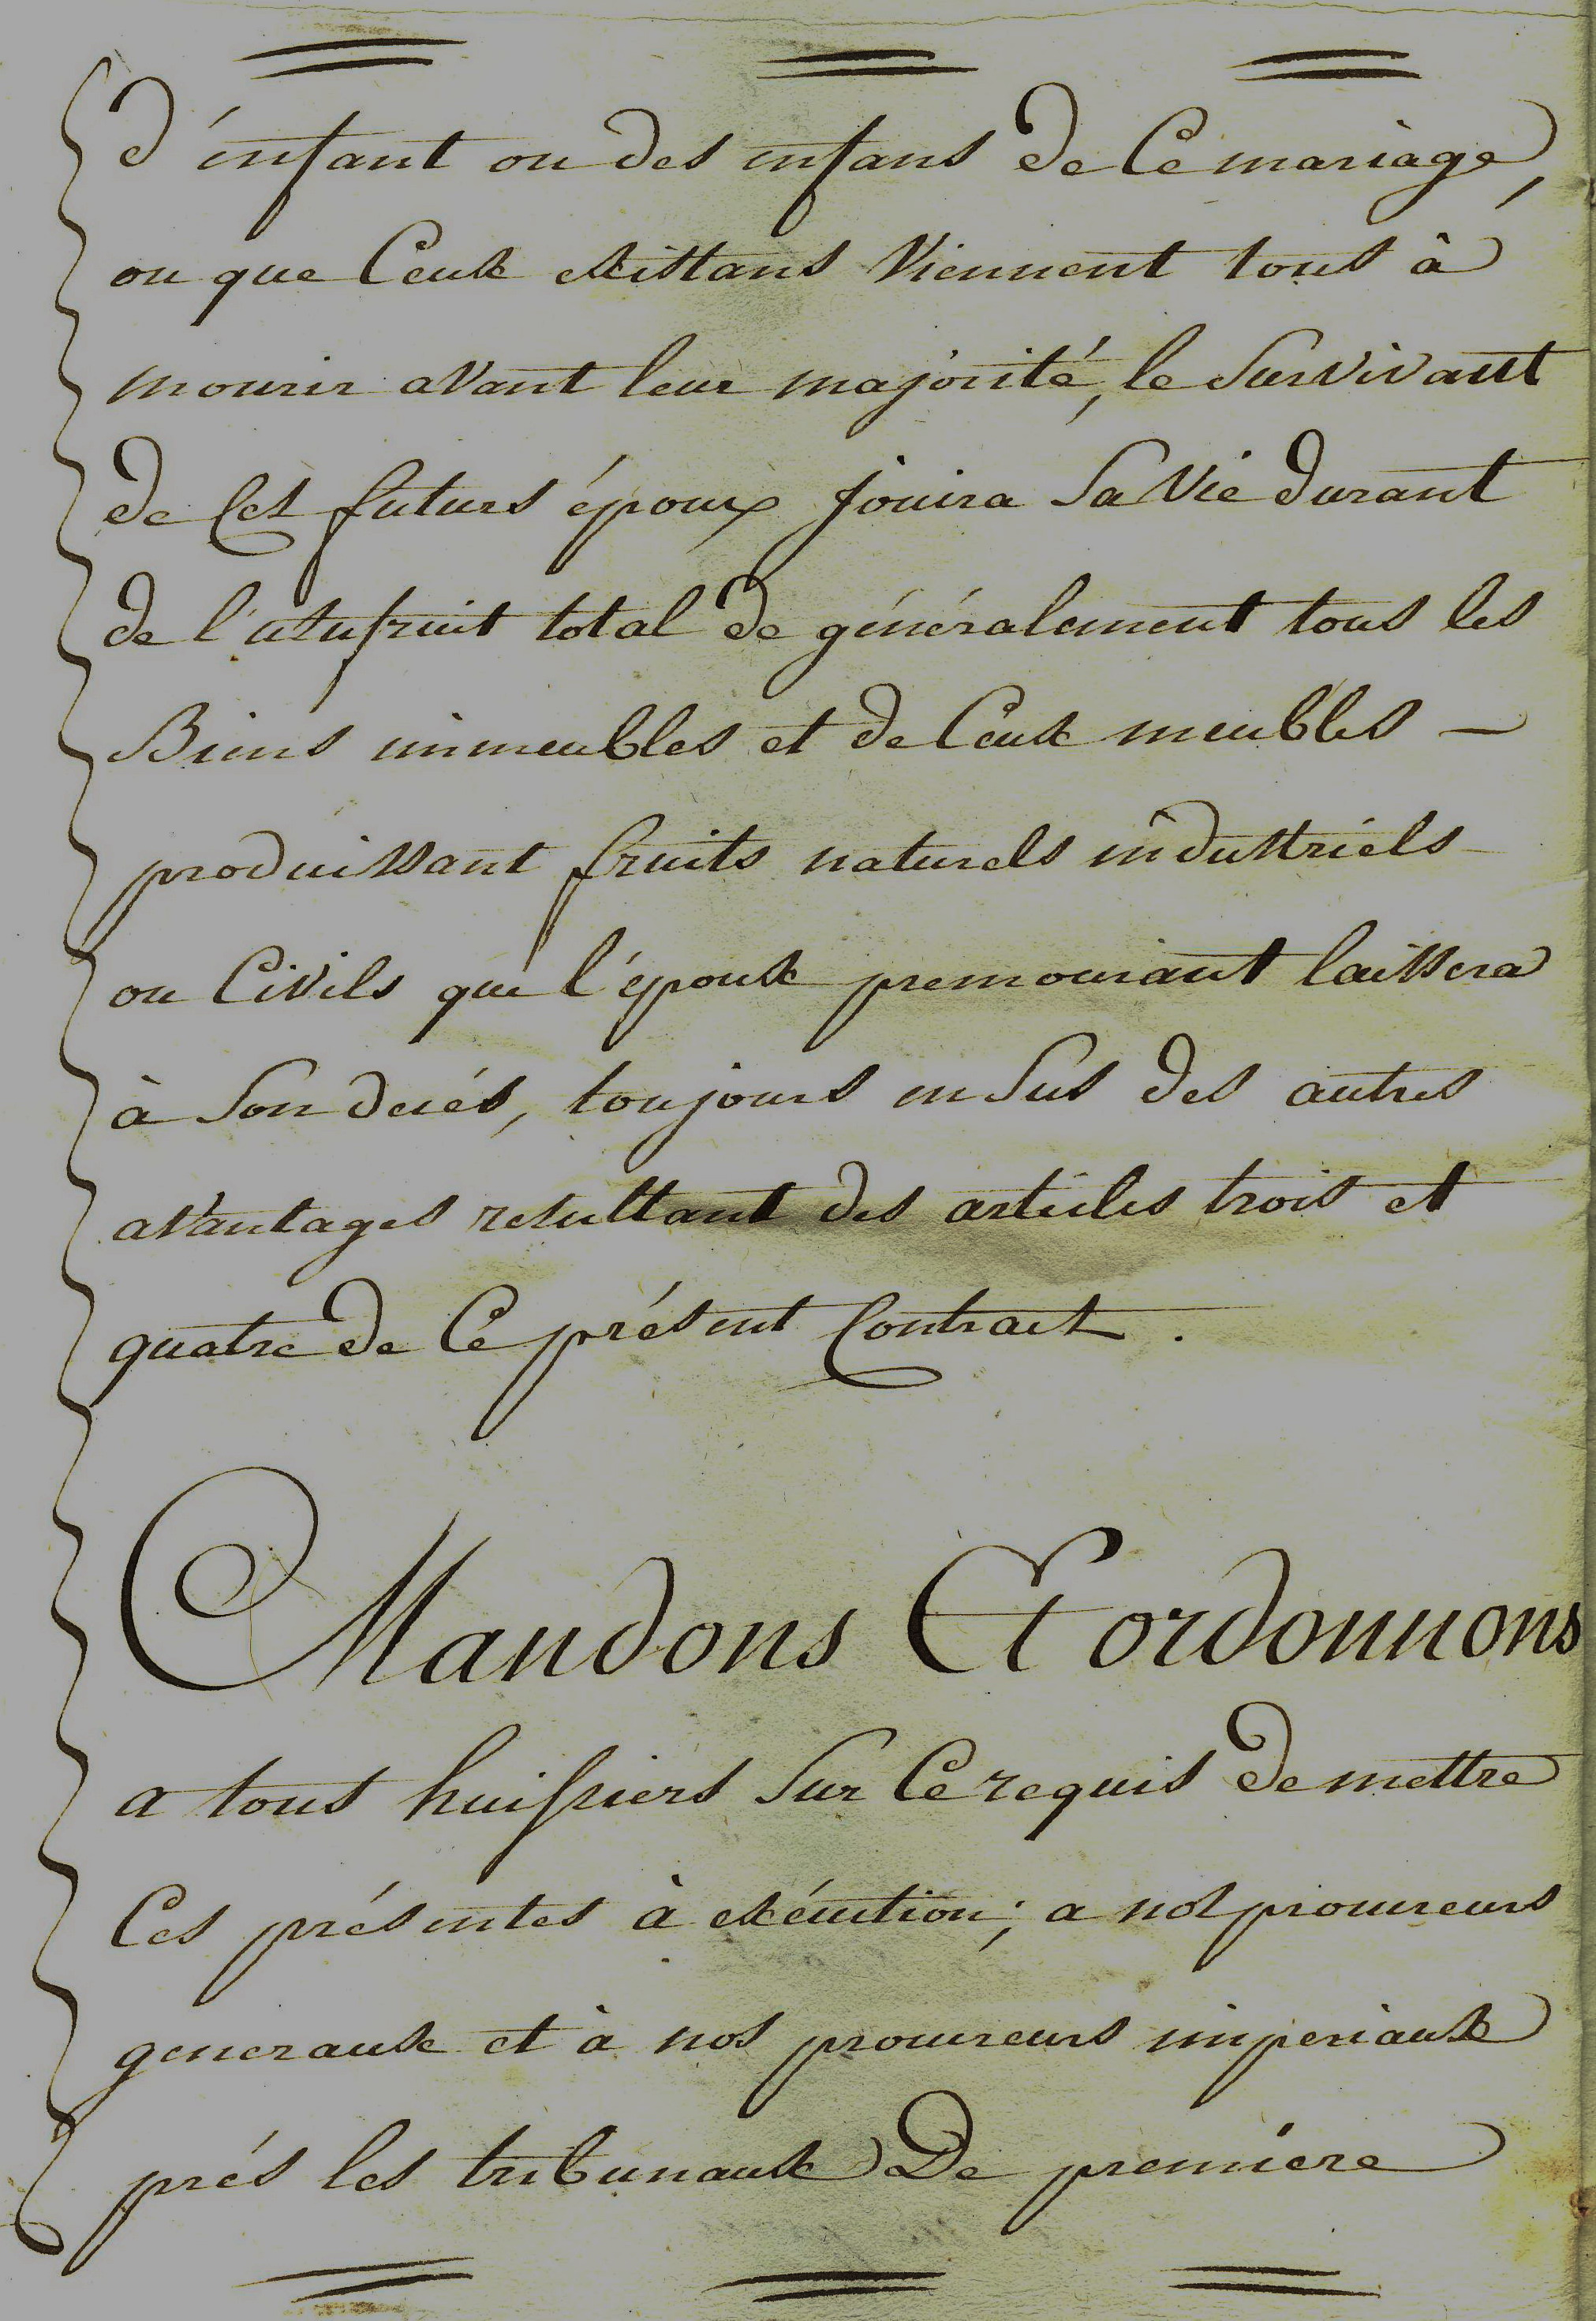 d'enfant ou des enfans de ce mariage,
ou que ceux existans viennent tous à
mourir avant leur majorité, le survivant
de ces futurs époux jouira sa vie durant
de l'usufruit total de généralement tous les
Biens immeubles et de ceux meubles —
produissant fruits naturels industriels
ou civils que l'époux premourant laissera
à son decés, toujours en sus des autres
avantages resultant des articles trois et
quatre de ce présent Contract.
Mandons Et ordonnons
a tous huissiers sur ce requis de mettre
Ces présentes à exécution; a nos procureurs
generaux et à nos procureurs imperiaux
prés les tribunaux De premiere